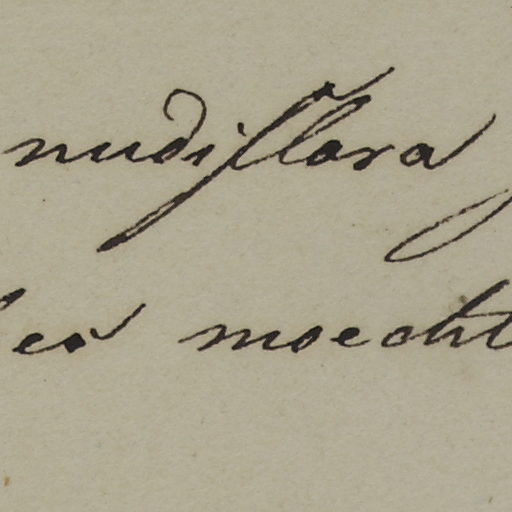 nudiflora
es moecht